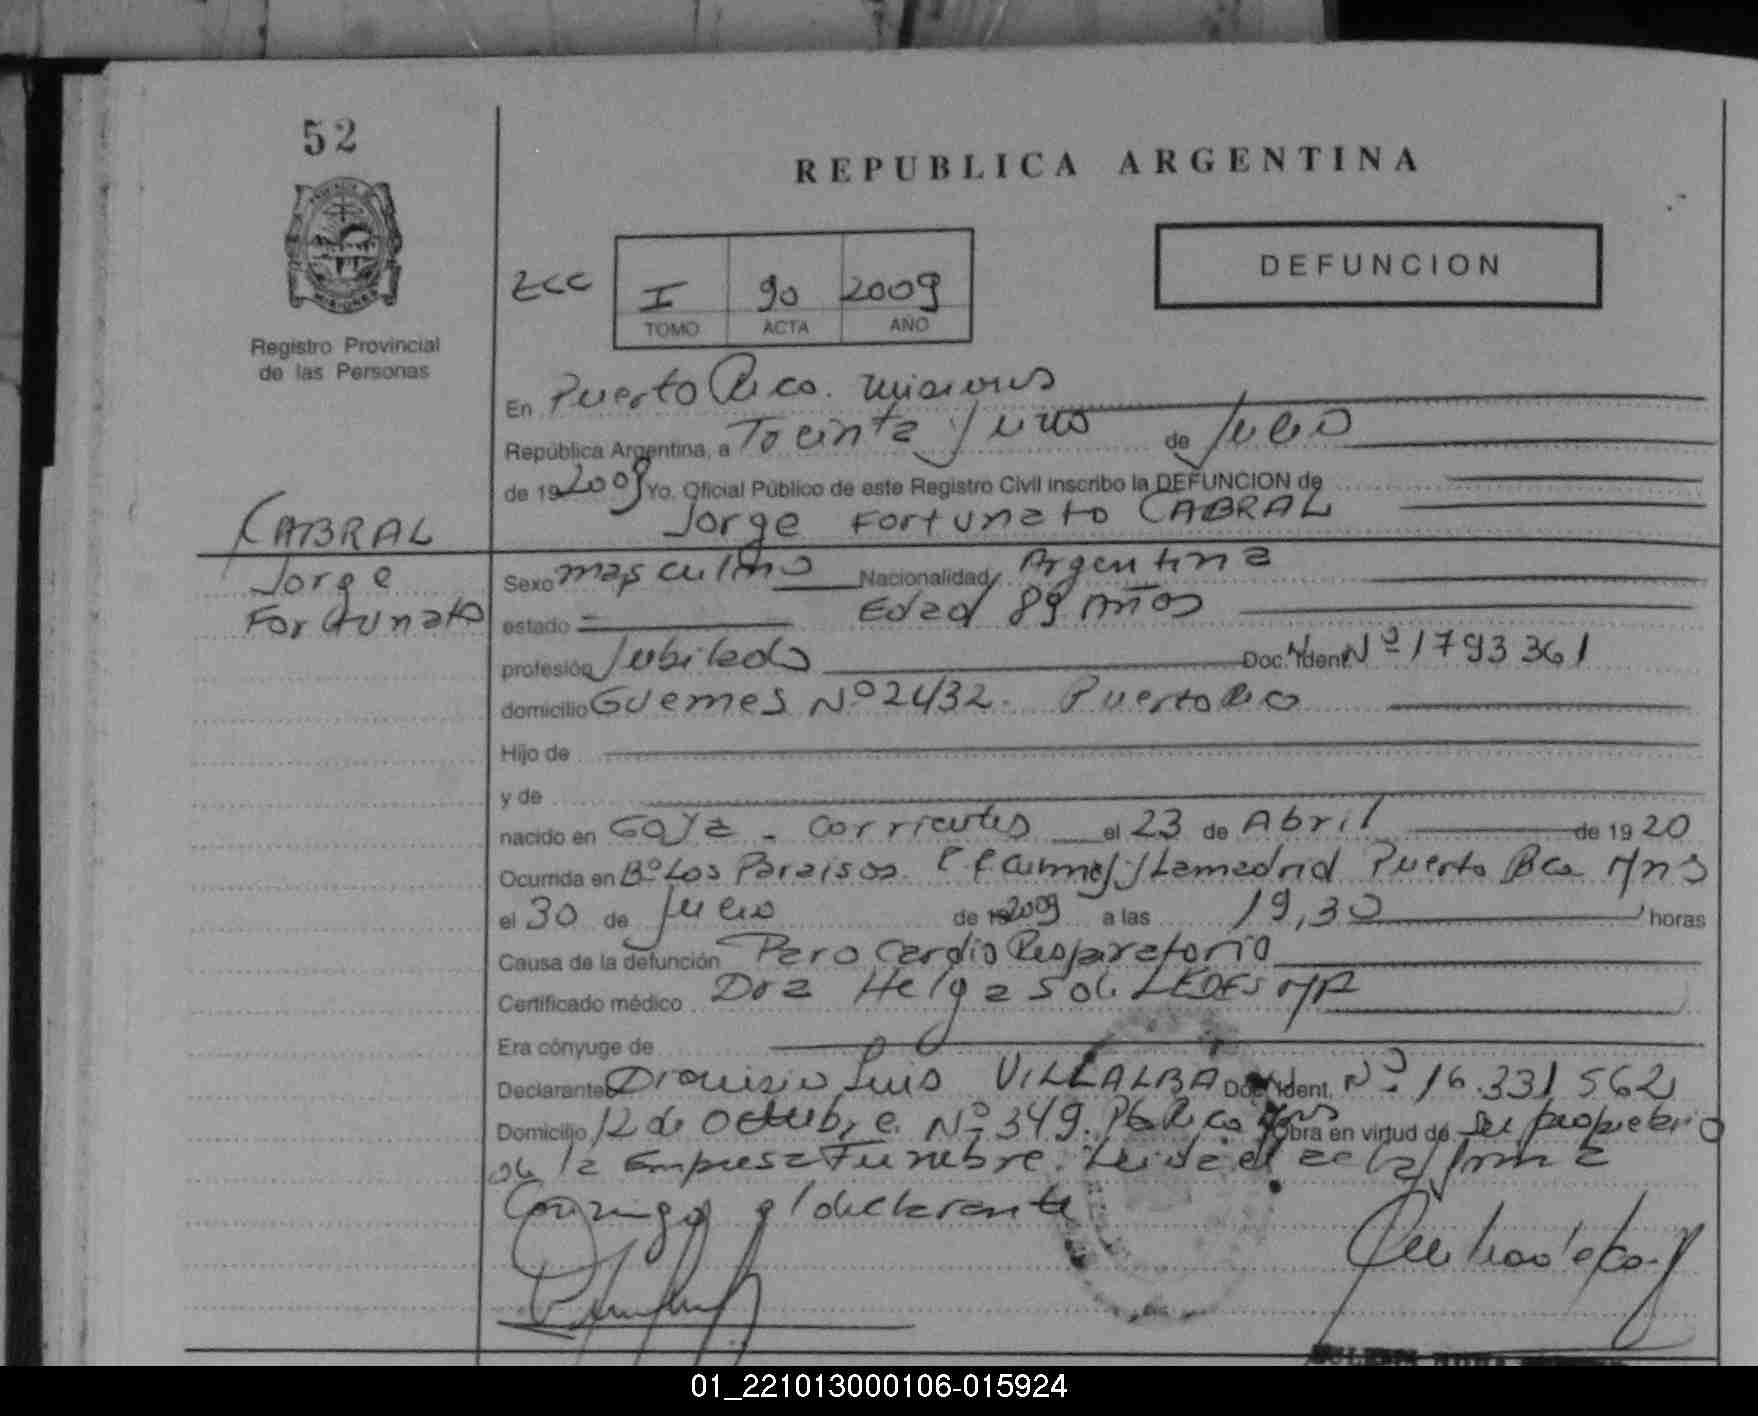 52
REPUBLICA ARGENTINA
DEFUNCION
I 90 2009
TOMO ACTA AÑO
Registro Provincial
de las Personas
En Puerto Rico. Misiones
República Argentina, a Treinta y uno de Julio
de 19 2009 Yo. Oficial Público de este Registro Civil inscribo la DEFUNCION de
Jorge Fortunato CABRAL
CABRAL
Jorge
Fortunato
Sexo masculino Nacionalidad Argentina
estado Edad 89 Años
profesión Jubilado Doc. Ident Nº 1793361
domicilio Guemes Nº 2432. Puerto Rico
Hijo de
y de
nacido en Goya - Corrientes el 23 de Abril de 1920
Ocurrida en Bº Los Paraisos y Lamadrid Puerto Rico Mns
el 30 de Julio de 2009 a las 19,30 horas
Causa de la defunción Paro Cardio Respiratorio
Certificado médico Dra Helga Sol LEDESMA
Era cónyuge de
Declarante Dionisio Luis VILLALBA Doc. Ident. Nº 16.331562
Domicilio 12 de Octubre Nº 349. Pto Rico Mns Obra en virtud de Ser propietario
de la Empresa Funebre. Leida el acta firma
Conmigo el declarante
01_221013000106-015924